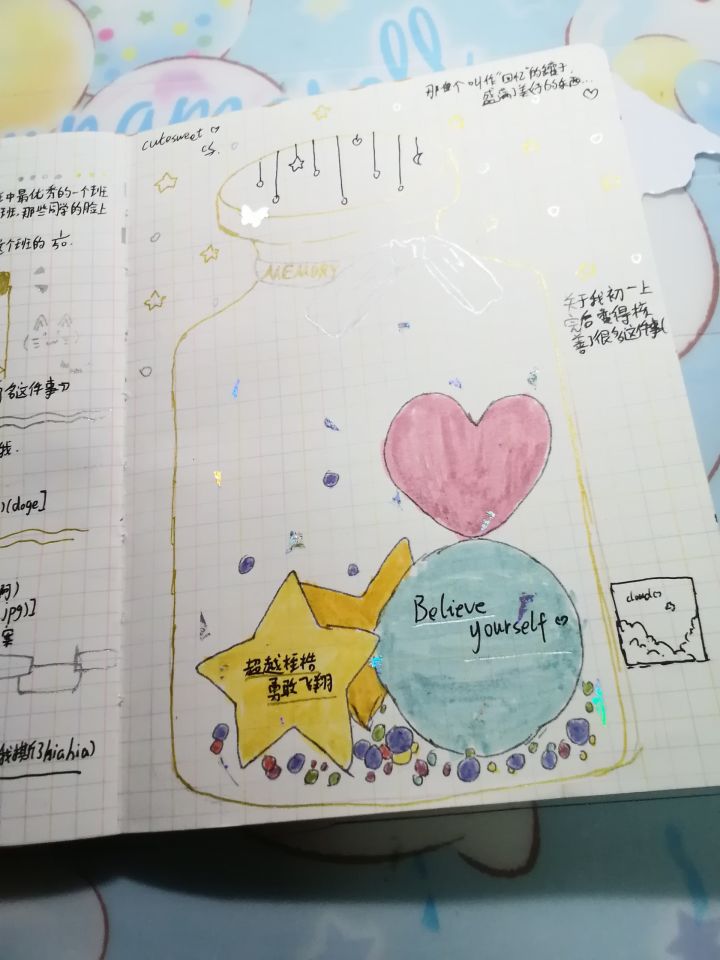 那个叫作“回忆”的罐子，
盛满了美好的东西...
cutesweet
MEMORY
关于我初一上
完后变得核
善了很多这件事
Believe
yourself
超越桎梏
勇敢飞翔
cloud
中最优秀的一个班
班，那些同学的脸上
这个班的 1/50.
多这件事
我.
)(doge]
啊)
.jpg)]
hiahia)